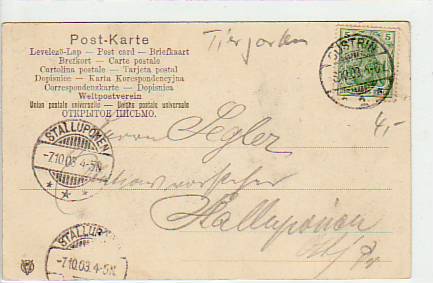 Post-Karte
Levelező-Lap — Post card — Briefkaart
Brefkort — Carte postale
Cartolina postale — Tarjeta postal
Dopisnice — Karta Korespondencyjna
Correspondenzkarte — Dopisnica
Weltpostverein
Union postale universelle — Unióhs postale universale
ОТКРЫТОЕ ПИСЬМО.
5 5
CÜSTRIN
4,-
STALLUPÖNEN
-7.10.03.4-5N.
Herrn Segler
Stallupönen
STALLUP
-7.10.03.4-5N.